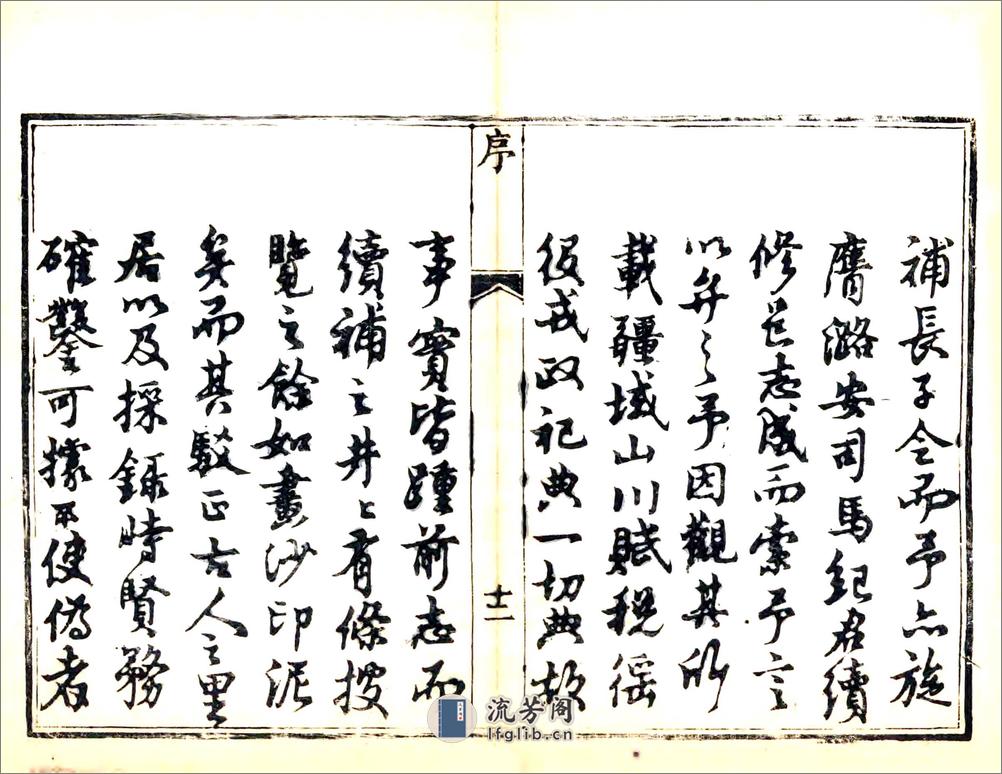 補長子令而予亦旋
膺潞安司馬紀君續
修邑志成而索予言
以弁之予因觀其所
載疆域山川賦稅徭
役戎政祀典一切典故
序
十一
事實皆踵前志而
續補之井〻有條披
覽之餘如畫沙印泥
矣而其駁正古人之里
居以及採錄時賢務
確鑿可據不使偽者
流芳阁
lfglib.cn